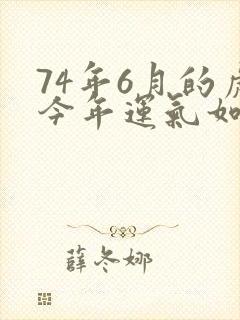 74年6月的虎
今年運氣如
薛冬娜